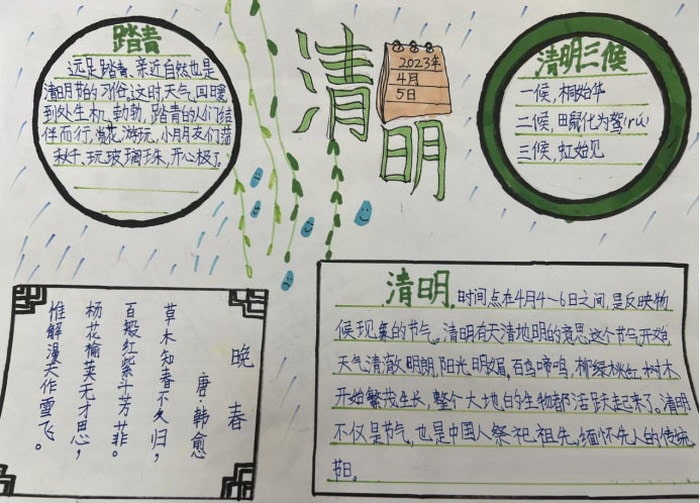 踏青
远足踏青、亲近自然也是
清明节的习俗,这时天气回暖
到处生机勃勃,踏青的人们结
伴而行,赏花,游玩,小朋友们荡
秋千,玩玻璃珠,开心极了。
清明
2023年
4月
5日
清明三候
一候,桐始华
二候,田鼠化为鴽(rú)
三候,虹始见
晚春
唐·韩愈
草木知春不久归,
百般红紫斗芳菲。
杨花榆荚无才思,
惟解漫天作雪飞。
清明,时间点在4月4~6日之间,是反映物
候现象的节气。清明有天清地明的意思,这个节气开始,
天气清澈明朗,阳光明媚,百鸟啼鸣,柳绿桃红,树木
开始繁茂生长,整个大地的生物都活跃起来了。清明
不仅是节气,也是中国人祭祀祖先,缅怀先人的传统
节日。